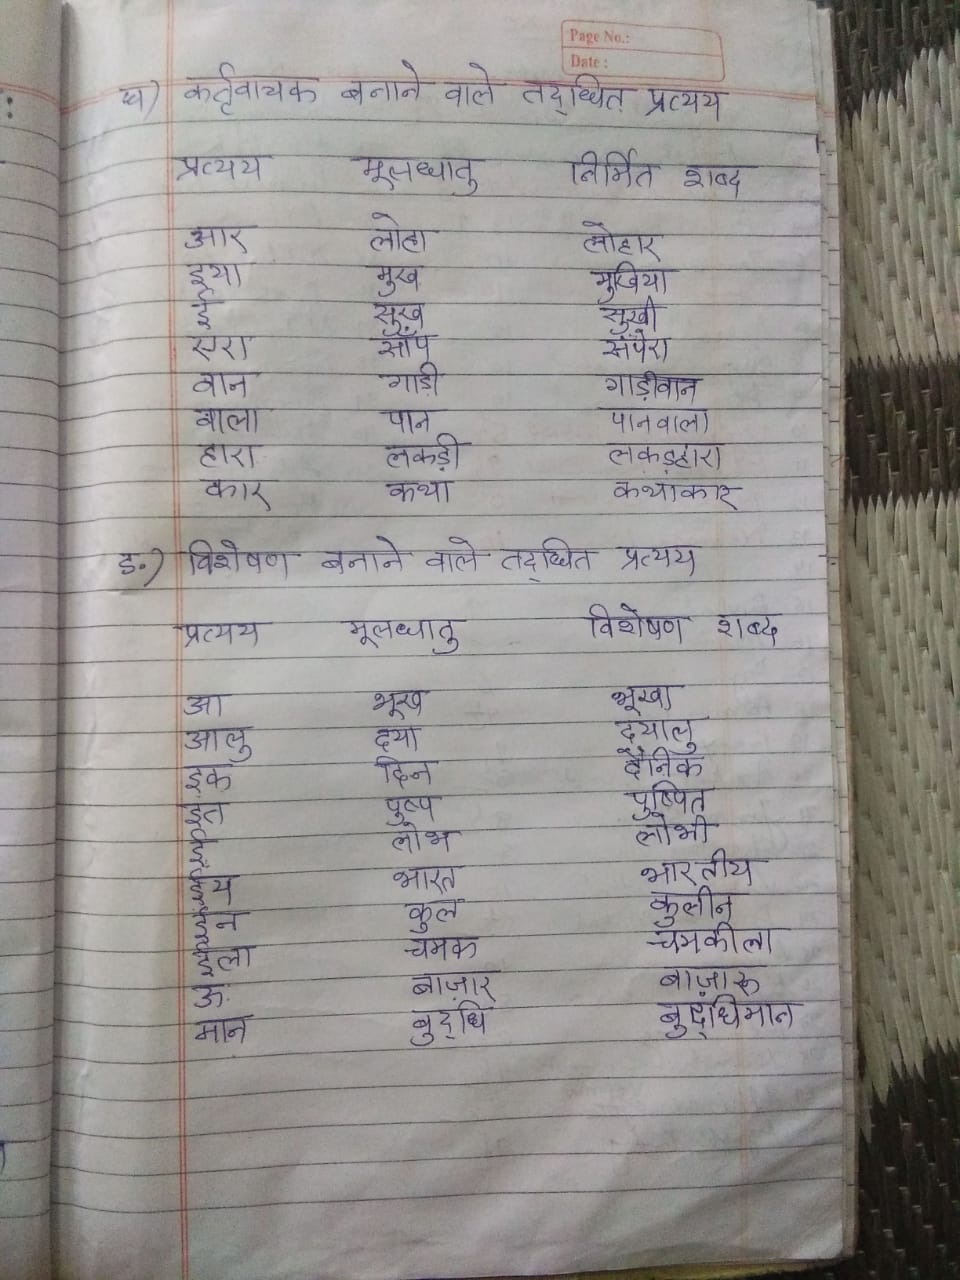 Page No.:
Date :
घ) कर्तृवाचक बनाने वाले तद्धित प्रत्यय
प्रत्यय मूलधातु निर्मित शब्द
आर लोहा लोहार
इया मुख मुखिया
ई सुख सुखी
एरा साँप सँपेरा
वान गाड़ी गाड़ीवान
वाला पान पानवाला
हारा लकड़ी लकड़हारा
कार कथा कथाकार
ङ.) विशेषण बनाने वाले तद्धित प्रत्यय
प्रत्यय मूलधातु विशेषण शब्द
आ भूख भूखा
आलु दया दयालु
इक दिन दैनिक
इत पुष्प पुष्पित
ई लोभ लोभी
ईय भारत भारतीय
ईन कुल कुलीन
ईला चमक चमकीला
ऊ बाज़ार बाज़ारू
मान बुद्धि बुद्धिमान